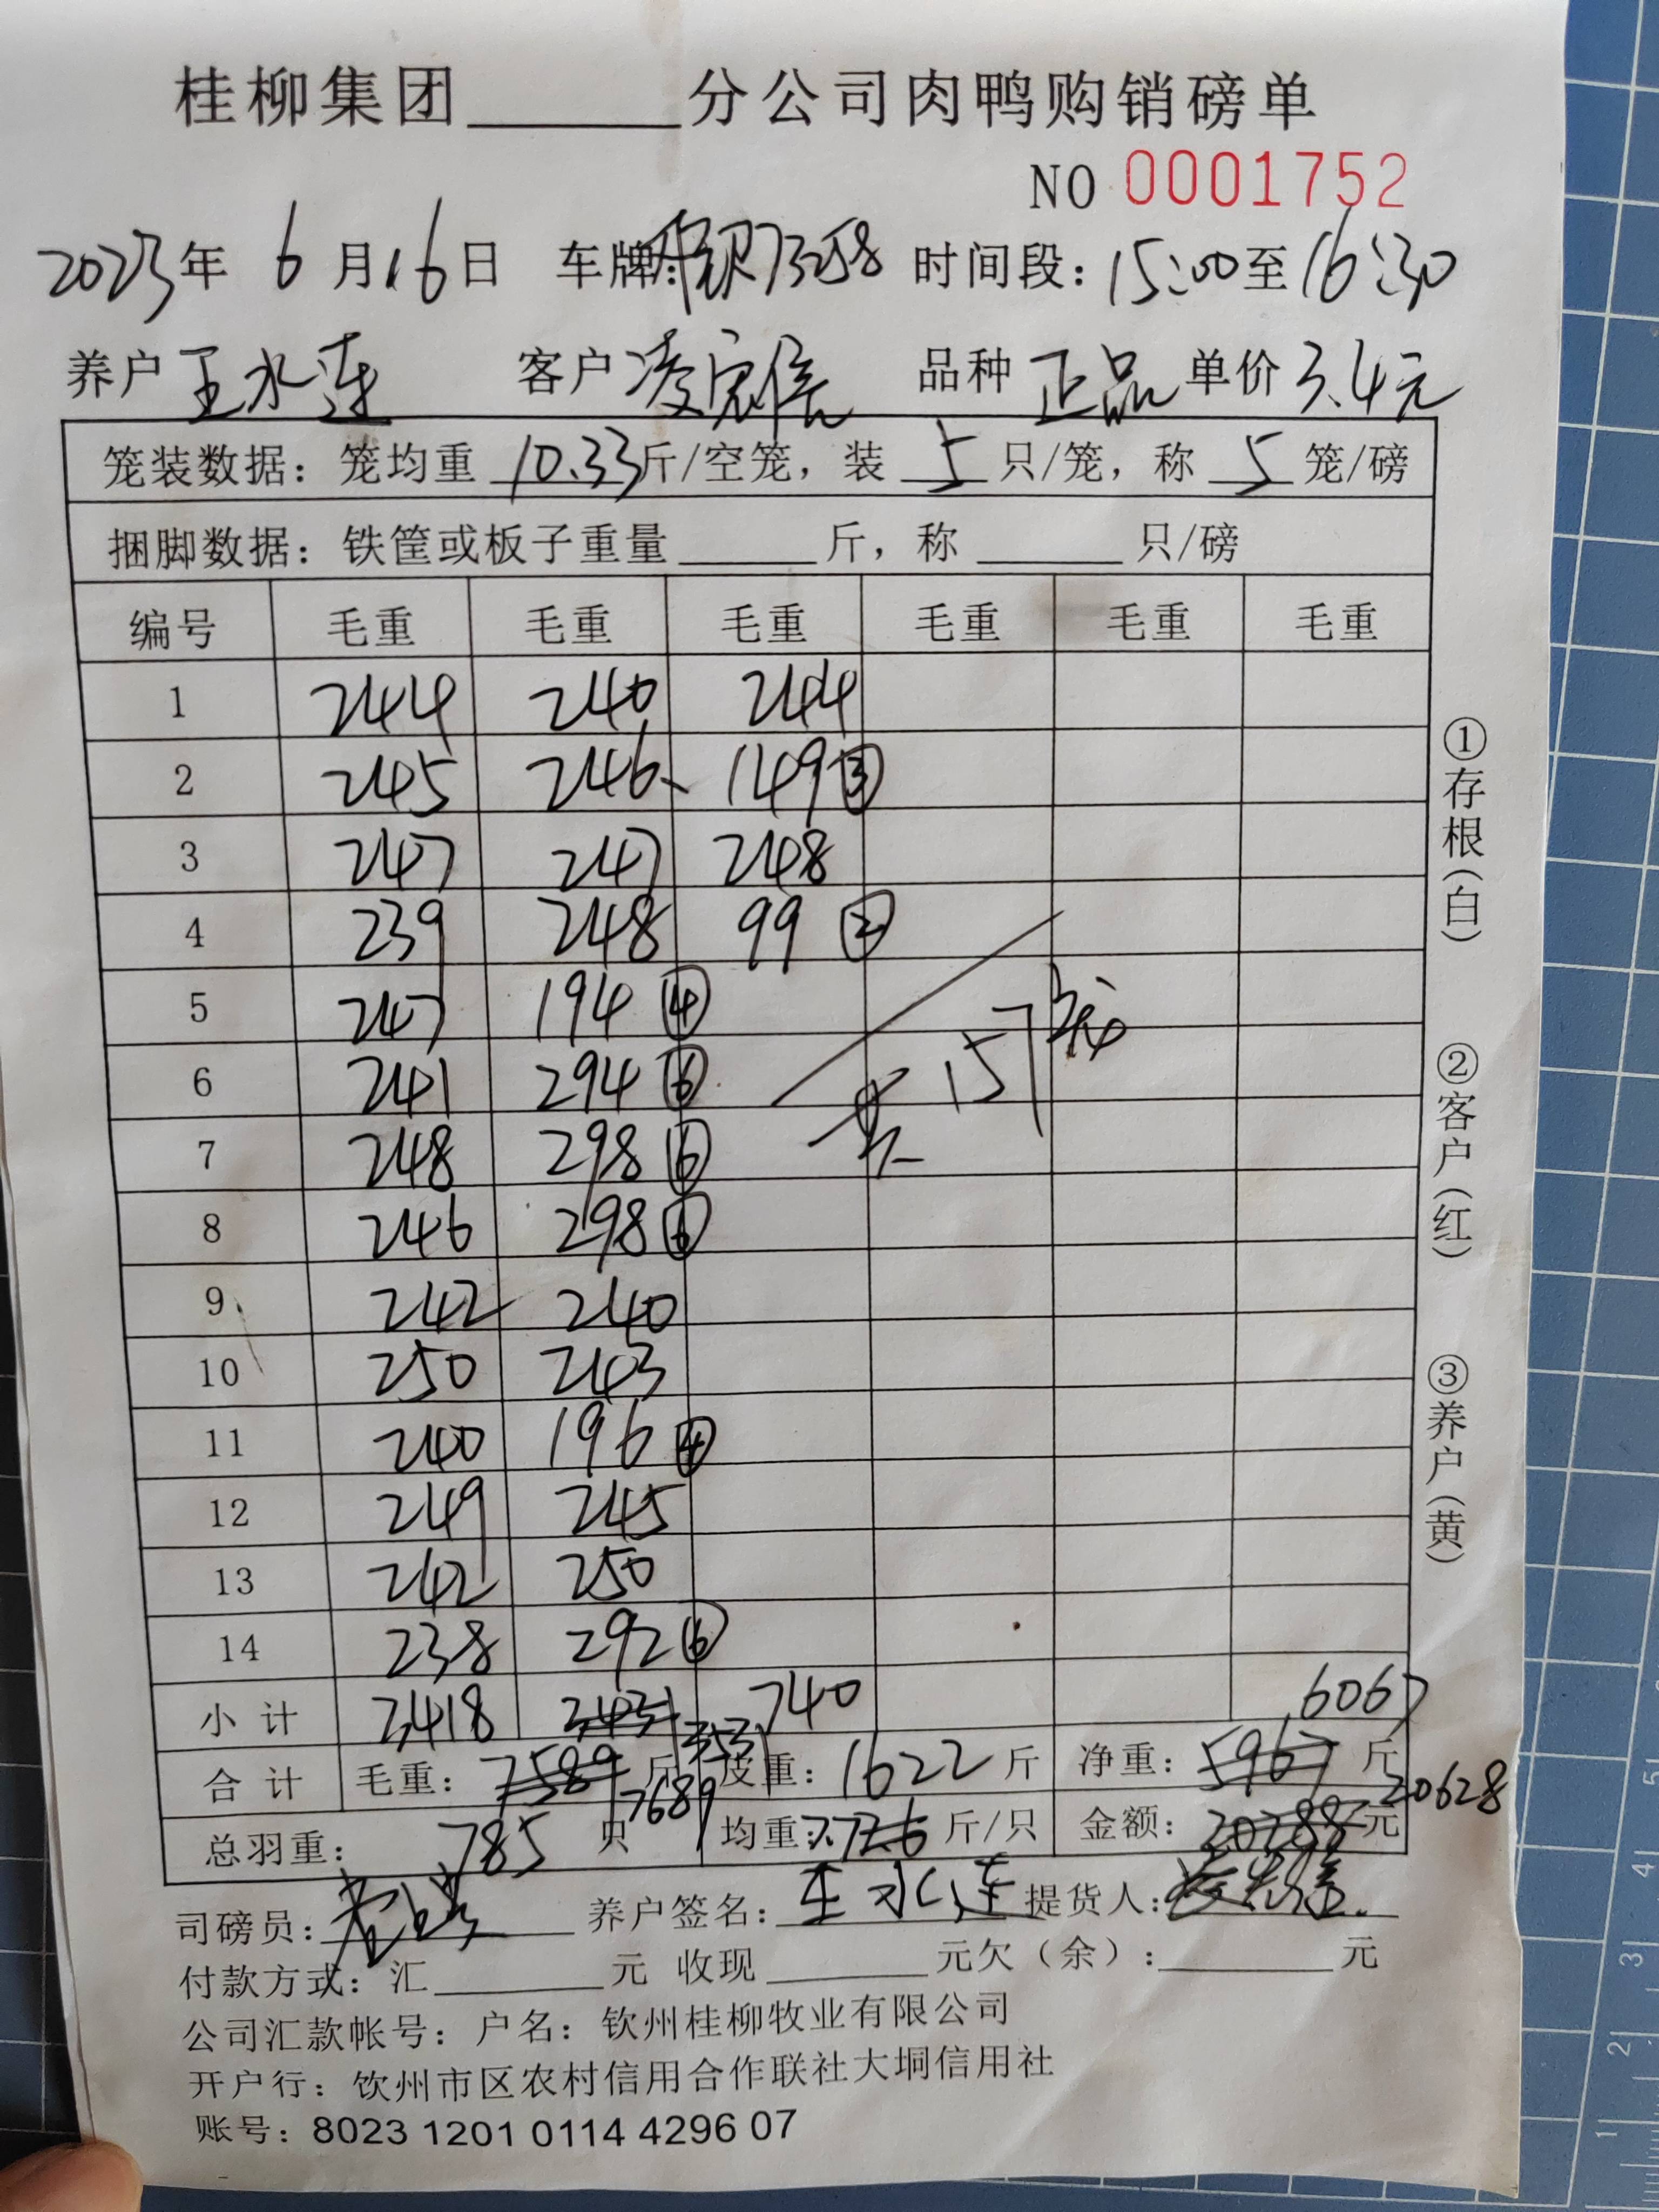 桂柳集团______分公司肉鸭购销磅单
NO 0001752
2023年 6 月16日 车牌: 时间段: 15:00至16:30
养户 王水连 客户 凌 品种 正品 单价 3.4元
笼装数据: 笼均重 10.33斤/空笼, 装 5 只/笼, 称 5 笼/磅
捆脚数据: 铁筐或板子重量______斤, 称______只/磅
编号 毛重 毛重 毛重 毛重 毛重 毛重
1 244 240 244
2 245 246 149③
3 247 247 248
4 239 248 99②
5 247 194④
6 241 294⑥
7 248 298⑥
8 246 298⑥
9 242 240
10 250 243
11 240 196④
12 249 245
13 242 250
14 238 292⑥
共157笼
小计 3,418 3,431 3531 740 6067
合计 毛重: 7589斤 7689 皮重: 1622斤 净重: 5967斤
总羽重: 785只 均重: 7.7斤/只 金额: 20288元 20628
司磅员: 养户签名: 王水连 提货人:
付款方式: 汇______元 收现______元欠(余):______元
公司汇款帐号: 户名: 钦州桂柳牧业有限公司
开户行: 钦州市区农村信用合作联社大垌信用社
账号: 8023 1201 0114 4296 07
①存根(白)
②客户(红)
③养户(黄)